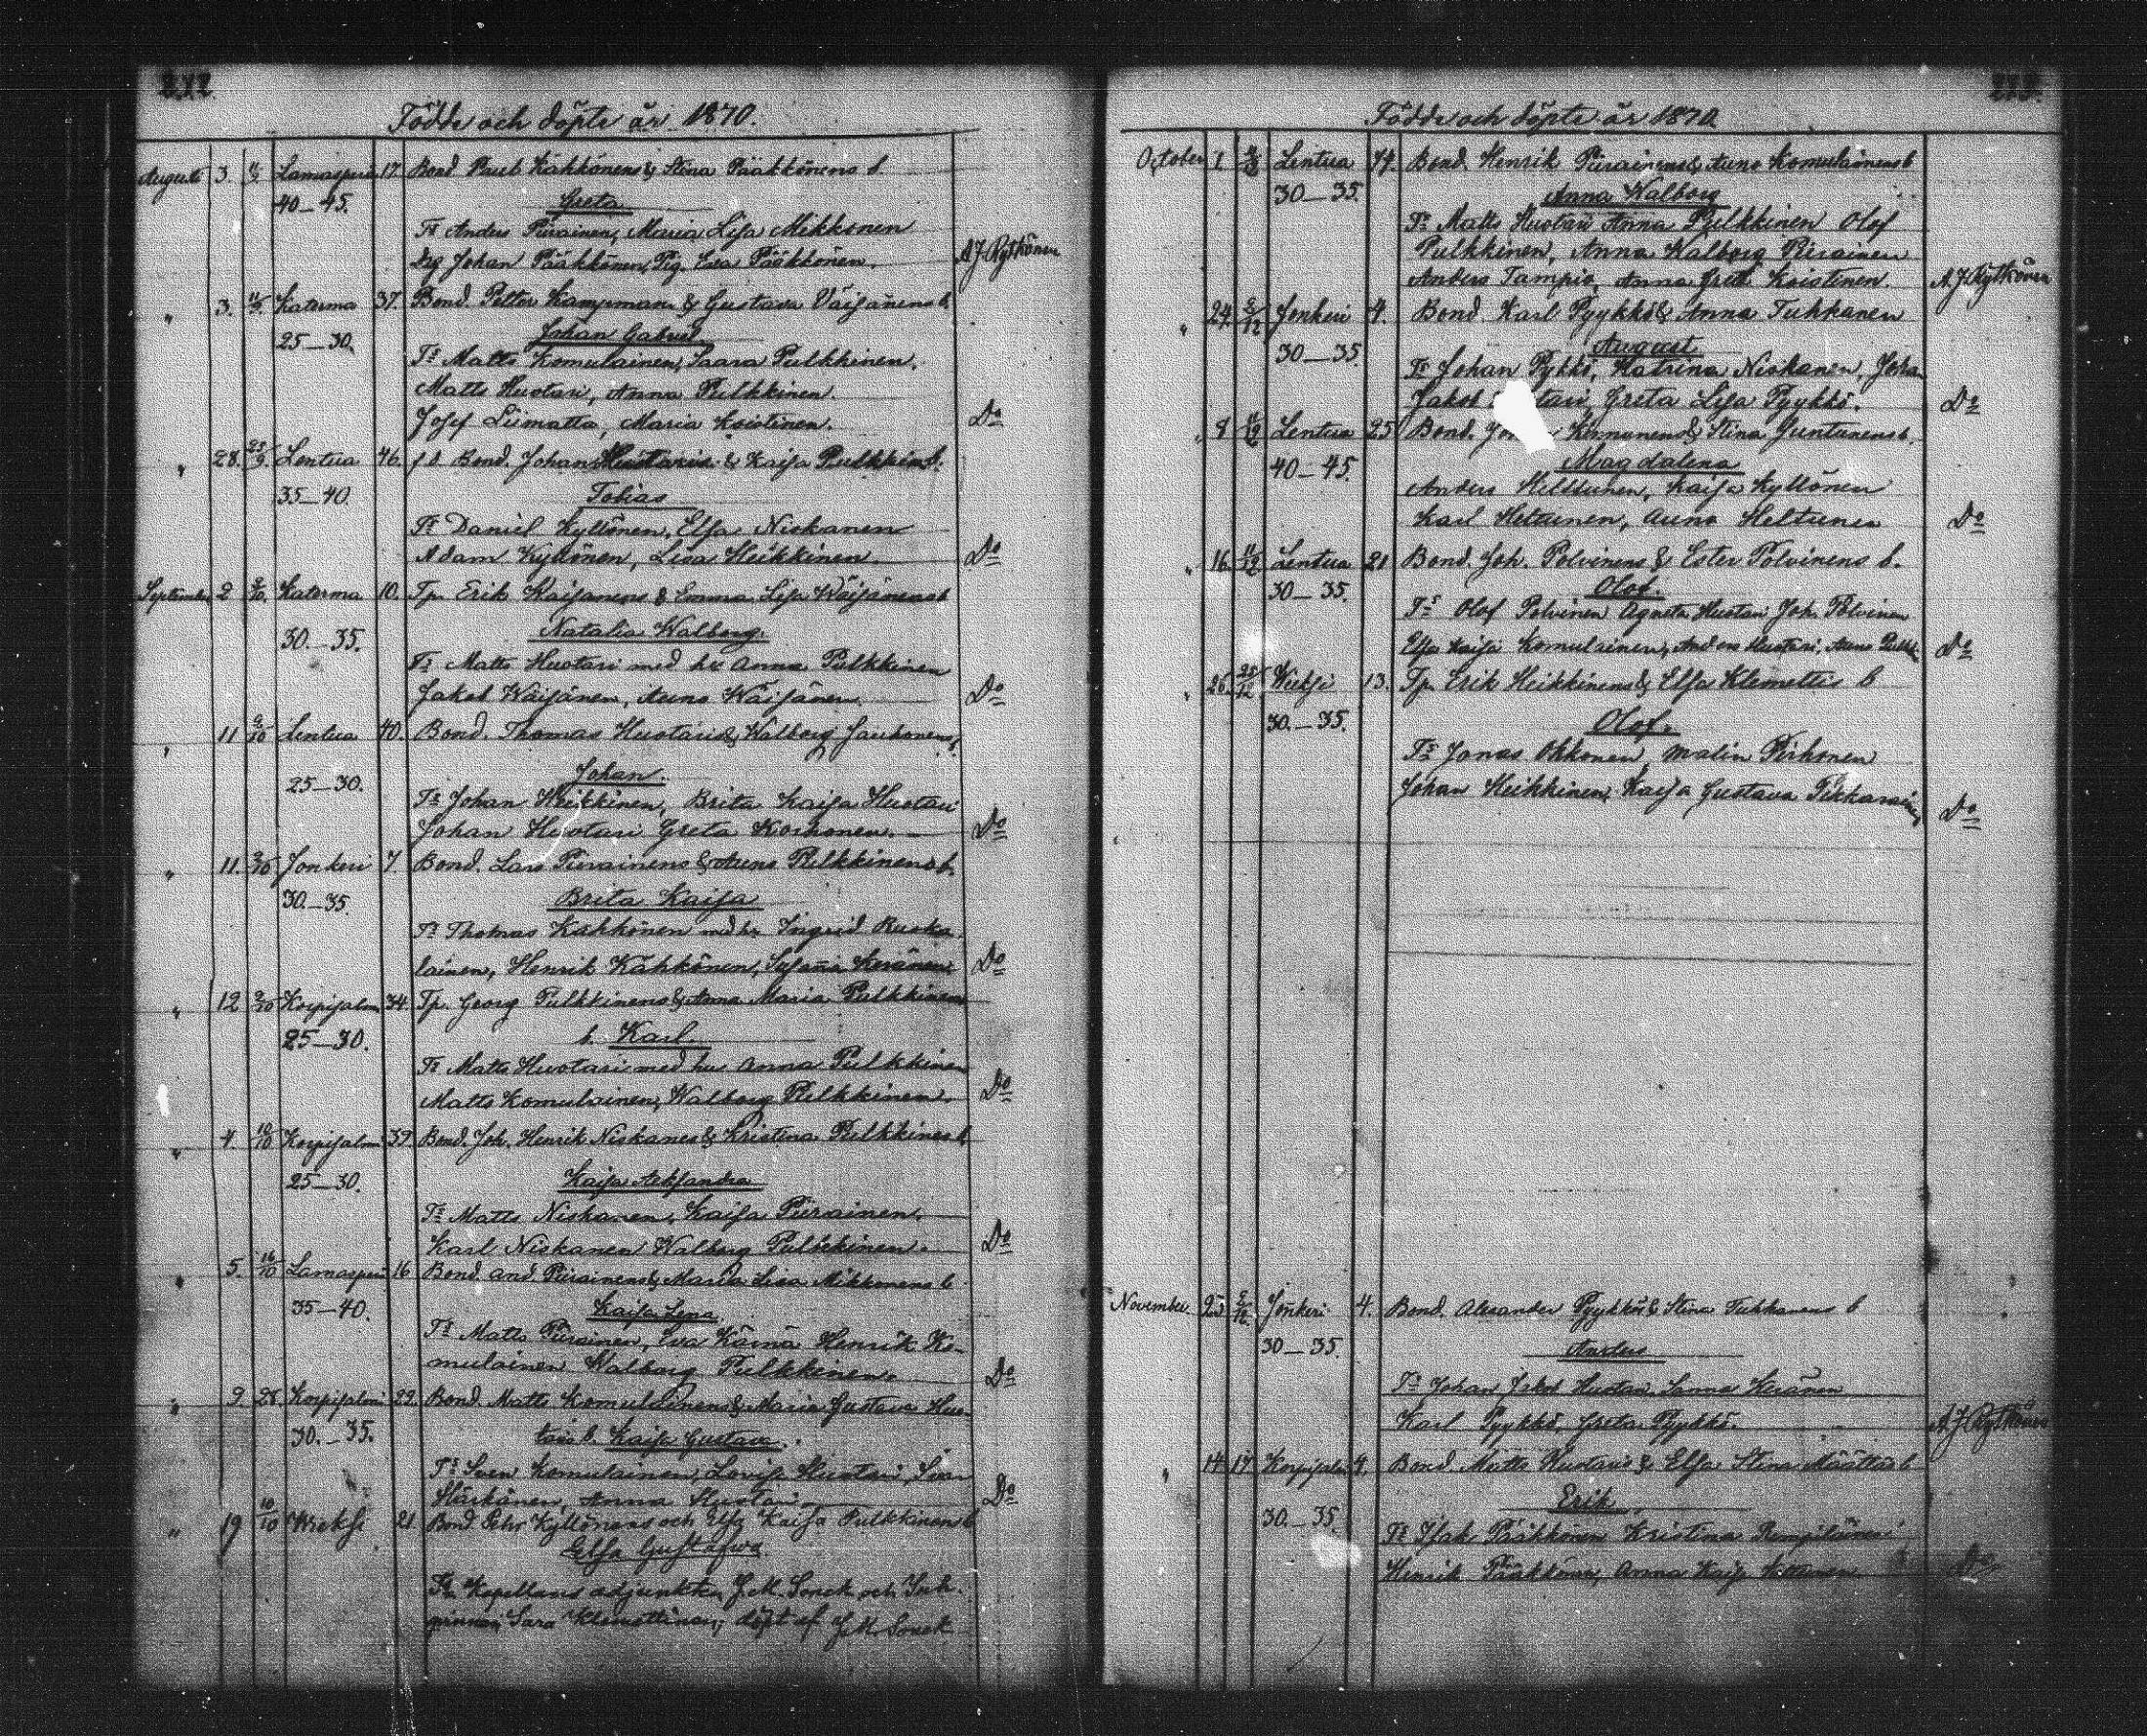 Födde och döpte år 1870.
Augusti 3. Lamasperä 17. Bond. Paul Kähkönens & Stina Pääkkönens b.
40–45. Greta
Fr Anders Piirainen, Maria Lisa Mikkonen
Drg Johan Pääkkönen, Pig. Eva Pääkkönen. A J Rytkönen
" 3. Katerma 37. Bond. Petter Kamperman & Gustava Väisänens b.
25–30. Johan Gabriel
Fr Matts Komulainen, Saara Pulkkinen.
Matts Huotari, Anna Pulkkinen.
Josef Liimatta, Maria Koistinen. Do
" 28. 25/9. Lentua 46. f d Bond. Johan Huotaris & Kaisa Pulkkin. b.
35–40. Tobias
Fr Daniel Kyllönen, Elsa Niskanen
Adam Kyllönen, Lisa Heikkinen. Do
September 2 Katerma 10. Tp. Erik Kaisanens & Emma Lisa Wäisänens b
30.–35. Natalia Walborg.
Fr Matts Huotari med hu Anna Pulkkinen
Jakob Wäisänen, Auno Wäisänen. Do
" 11 9/10 Lentua 40. Bond. Thomas Huotaris & Walborg Jauhonens b.
25–30. Johan.
Fr Johan Heikkinen, Brita Kaisa Huotari
Johan Huotari Greta Korhonen. Do
" 11. 9/10 Jonkeri 7. Bond. Lars Piirainens & Auno Pulkkinens b.
30.–35. Brita Kaisa
Fr Thomas Kähkönen med hu Ingrid Ruoka
lainen, Henrik Kähkönen, Susanna Keränen Do
" 12 9/10 Korpisalmi 34. Tp. Georg Pulkkinens & Anna Maria Pulkkinens
25–30. b. Karl.
Fr Matts Huotari med hu Anna Pulkkinen
Matts Komulainen, Walborg Pulkkinen. Do
" 4. 10/10 Korpisalmi 39. Bond. Joh. Henrik Niskanes & Kristina Pulkkines b.
25–30. Kaisa Aleksandra
Fr Matts Niskanen, Kaisa Piirainen.
Karl Niskanen Walborg Pulkkinen. Do
" 5. 16/10 Lamasperä 16. Bond. And. Piirainens & Maria Lisa Mikkonens b
35–40. Kaisa Lena
Fr Matts Piirainen, Eva Kärnä Henrik Ko-
mulainen Walborg Pulkkinen. Do
" 9. 28. Korpisalmi 29. Bond. Matts Komulainens & Maria Gustava Huo-
30.–35. taris b. Kaisa Gustava.
Fr Sven Komulainen, Lovisa Huotari, Ivar
Härkönen, Anna Huotari. Do
" 19 10/10 Wieksi 21. Bond Pehr Kyllönens och Elsa Kaisa Pulkkinens b
Elsa Gustafva
Fr. Kapellans adjunkten J.M. Sonck och Inh.
qvinnan Sara Klemettinen; döpt af J.M. Sonck
Födde och döpte år 1870.
October 1 Lentua 44. Bond. Henrik Piirainens & Auno Komulainens b
30–35. Anna Walborg
Fr Matts Huotari Anna Pulkkinen Olof
Pulkkinen, Anna Walborg Piirainen
Anders Tampio, Anna Greta Koistinen. A. J. Rytkönen
" 24. Jonkeri 4. Bond. Karl Pyykkö & Anna Tuhkanen
30–35 August
Fr Johan Pykkö, Katrina Niskanen, Johan
Jakob Greta Lisa Pyykkö. Do
" 8 Lentua 25 Bond. Kinnunens & Stina Juntunens b.
40–45. Magdalena
Anders Heltunen, Kaisa Kyllönen
Karl Heltunen, Auno Heltunen Do
" 16. 11/12 Lentua 21 Bond. Joh. Polvinens & Ester Polvinens b.
30–35. Olof.
Fr Olof Polvinen Agneta Huotari Joh. Polvinen
Elsa Kaisa Komulainen, Anders Huotari, Auno Pulkk. Do
" 26. 25/12 Wieksi 13. Tp. Erik Heikkinens & Elsa Klemettis b
30.–35. Olof.
Fr Jonas Okkonen, Malin Pirhonen
Johan Heikkinen, Kaisa Gustava Tikkanainen Do
November Jonkeri 4. Bond. Alexander Pyykkös & Stina Tuhkanens b
30–35. Anders
Fr Johan Jakob Huotari, Sanna Keränen
Karl Pyykkö, Greta Pyykkö. A J Rytkönen
" 14 17 Korpisalmi 4. Bond. Matts Huotaris & Elsa Stina Määttäs b
30.–35. Erik
Fr Isak Pääkkönen Kristina Rumpilainen
Henrik Pääkkönen, Anna Kaisa Do